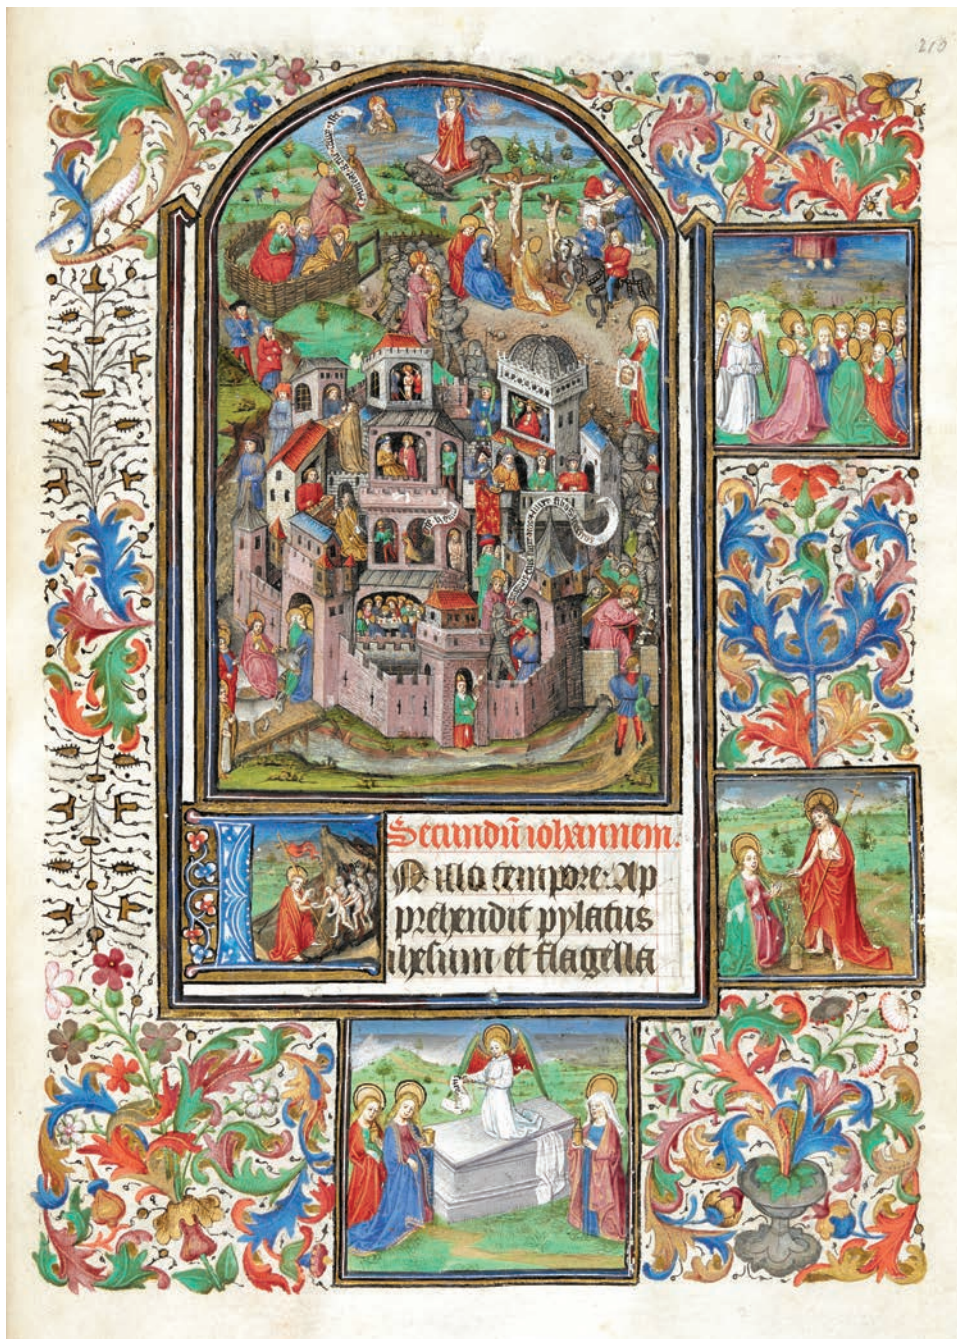 210
Secundū iohannem.
N illo tempore: Ap
prehendit pylatus
ihesum et flagella